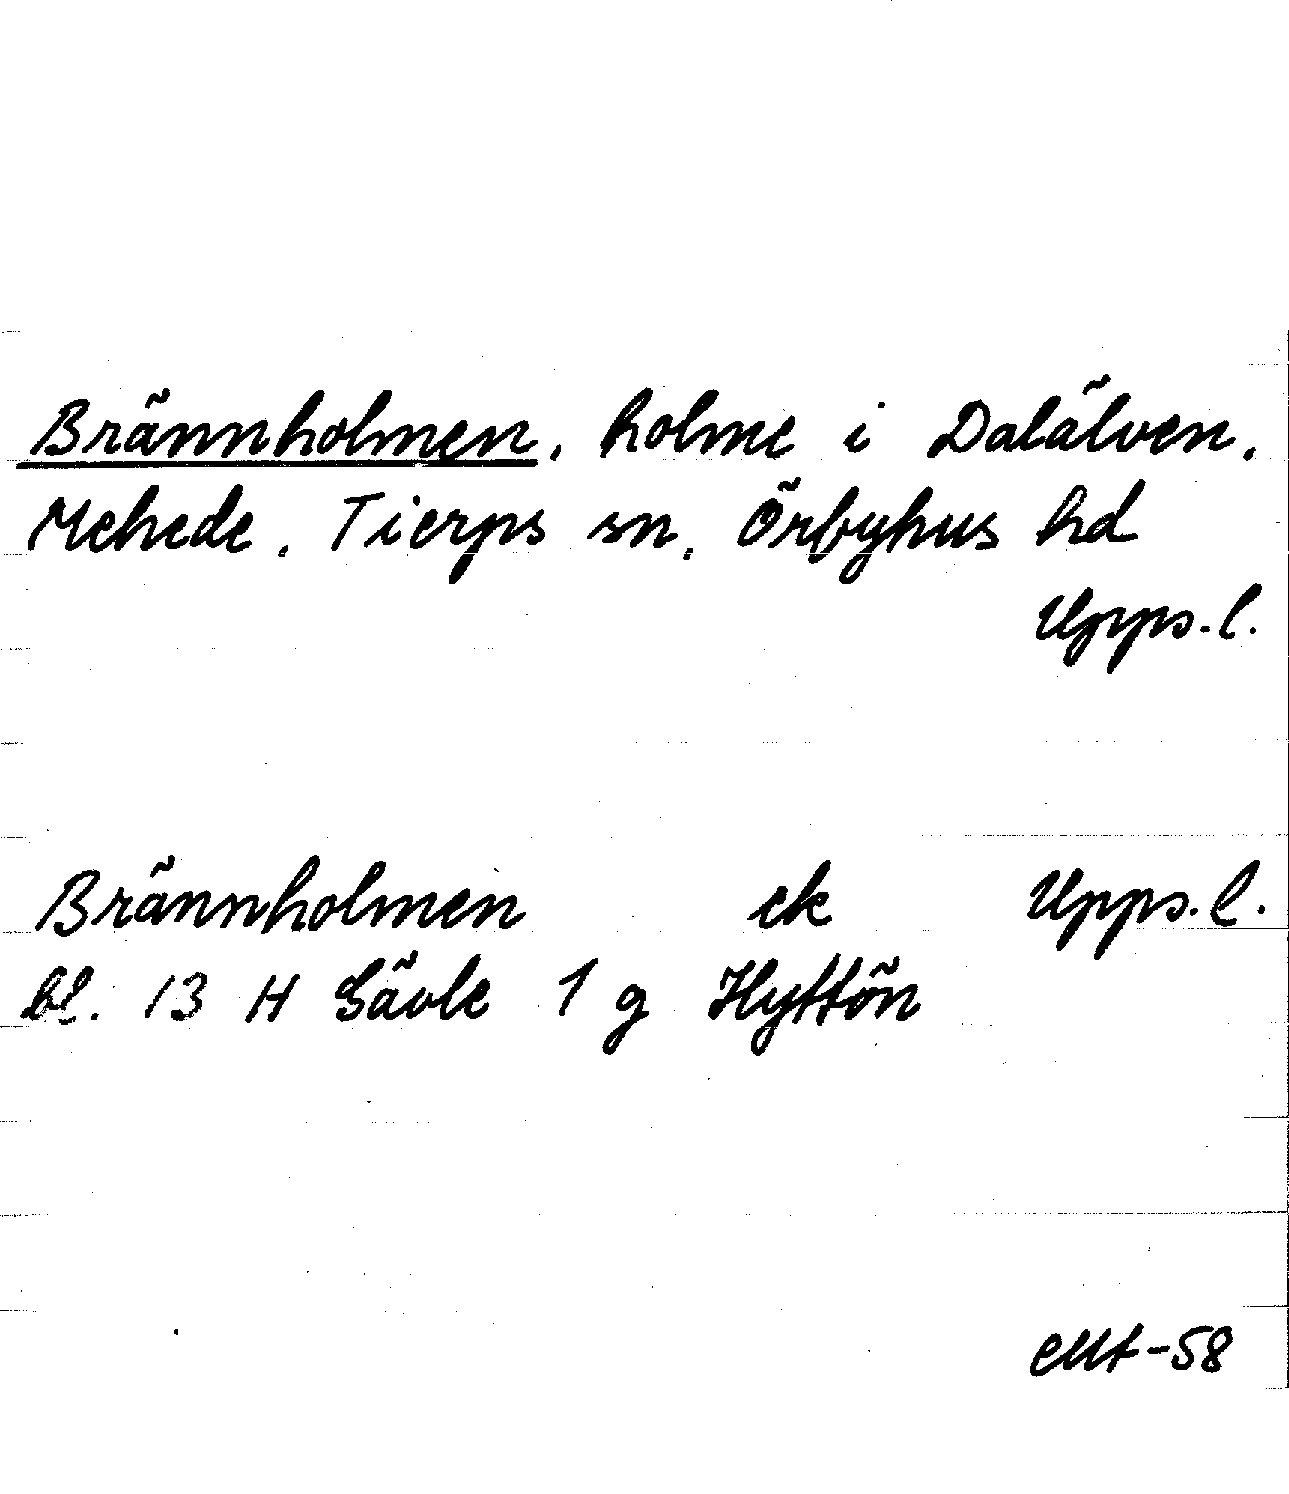 Brännholmen, holme i Dalälven,
Mehede, Tierps sn, Örbyhus hd
Upps. l.
Brännholmen ek Upps. l.
bl. 13 H Gävle 1 g Hyttön
-58